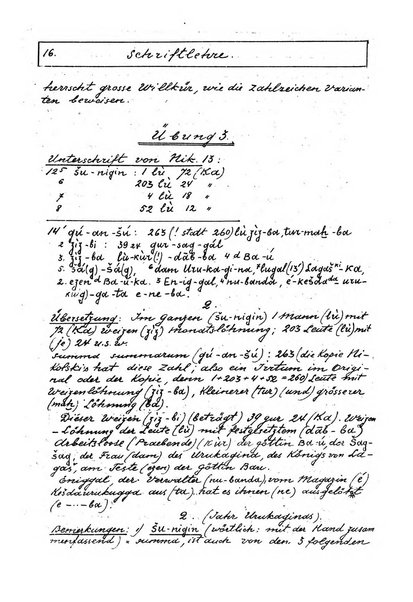 16. Schriftlehre.
herrscht grosse Willkür, wie die Zahlzeichen Varian-
ten beweisen.
Übung 3.
Unterschrift von Nik. 13:
12⁵ šu-nigin : 1 lù 72 (Ka)
6 203 lù 24 "
7 4 lù 18 "
8 52 lù 12 "
14' gú-an-šú: 263 (! statt 260) lù zíz-ba, tur-maḫ-ba
2 zíz-bi : 39 24 gur-sag-gál
3. zíz-ba lù-kur(!)-dab-ba 4 d Ba-ú
5. šá(g)-šá(g), 6 dam Uru-ka-gi-na, 7 lugal (15') Lagaš ki-ka,
2. ezen d Ba-ú-ka. 3 En-ig-gal, 4 nu-banda, é-
uru-
-ga-ta e-ne-ba.
2.
Übersetzung: Im ganzen (šu-nigin) 1 Mann (lù) mit
72 (Ka) Weizen (zíz) Monatslöhnung; 203 Leute (lù) mit
(je) 24 u.s.w.
summa summarum (gú-an-šú): 263 (die Kopie Ni-
kolskis hat diese Zahl; also ein Irrtum im Origi-
nal oder der Kopie, denn 1+203+4+52=260) Leute mit
Weizenlöhnung (zíz-ba), kleinerer (tur) (und) grösserer
(maḫ) Löhnung (ba).
Dieser Weizen (zíz-bi) (beträgt) 39 gur 24 (Ka). Weizen
-Löhnung der Leute (lù) mit festgesetztem (dab-ba)
(kur) der Göttin Ba-ú der Šag-
šag, der Frau (dam) des Urukagina des Königs von La-
gaš, am Feste (ezen) der Göttin Bau.
Eniggal, der Verwalter (nu-banda), vom Magazin (é)
aus (ta) hat es ihnen (ne) ausgelöhnt
(e-··-ba).
2. (Jahr Urukaginas).
Bemerkungen: 1) šu-nigin (wörtlich: mit der Hand zusam
menfassend) = summa, ist auch von den 3 folgenden